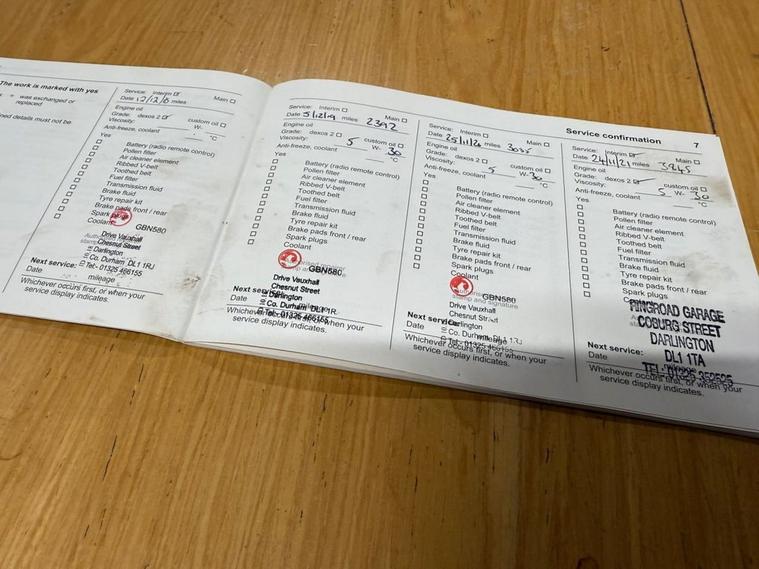 The work is marked with yes
= was exchanged or
replaced
ned details must not be
Service: Interim Main
Date 12/12/18 miles
Engine oil
Grade: dexos 2 custom oil
Viscosity: W-
Anti-freeze, coolant °C
Yes
Battery (radio remote control)
Pollen filter
Air cleaner element
Ribbed V-belt
Toothed belt
Fuel filter
Transmission fluid
Brake fluid
Tyre repair kit
Brake pads front / rear
Spark plugs
Coolant
GBN580
Drive Vauxhall
Chesnut Street
Darlington
Co. Durham DL1 1RJ
Tel:- 01325 466155
Next service:
Date mileage
Whichever occurs first, or when your
service display indicates.
Service: Interim Main
Date 5/12/19 miles 2392
Engine oil
Grade: dexos 2 custom oil
Viscosity: 5 W- 30
Anti-freeze, coolant °C
Yes
Battery (radio remote control)
Pollen filter
Air cleaner element
Ribbed V-belt
Toothed belt
Fuel filter
Transmission fluid
Brake fluid
Tyre repair kit
Brake pads front / rear
Spark plugs
Coolant
GBN580
Drive Vauxhall
Chesnut Street
Darlington
Co. Durham DL1 1RJ
Tel:- 01325 466155
Next service:
Date
Whichever occurs first, or when your
service display indicates.
Service confirmation 7
Service: Interim Main
Date 25/11/20 miles 3035
Engine oil
Grade: dexos 2 custom oil
Viscosity: 5 W- 30
Anti-freeze, coolant °C
Yes
Battery (radio remote control)
Pollen filter
Air cleaner element
Ribbed V-belt
Toothed belt
Fuel filter
Transmission fluid
Brake fluid
Tyre repair kit
Brake pads front / rear
Spark plugs
Coolant
GBN580
stamp and signature
Drive Vauxhall
Chesnut Street
Darlington
Co. Durham DL1 1RJ
Tel:- 01325 466155
Next service:
Date
Whichever occurs first, or when your
service display indicates.
Service: Interim Main
Date 24/11/21 miles 3845
Engine oil
Grade: dexos 2 custom oil
Viscosity: 5 W- 30
Anti-freeze, coolant °C
Yes
Battery (radio remote control)
Pollen filter
Air cleaner element
Ribbed V-belt
Toothed belt
Fuel filter
Transmission fluid
Brake fluid
Tyre repair kit
Brake pads front / rear
Spark plugs
RINGROAD GARAGE
COBURG STREET
DARLINGTON
DL1 1TA
Next service:
Date
Whichever occurs first, or when your
service display indicates.